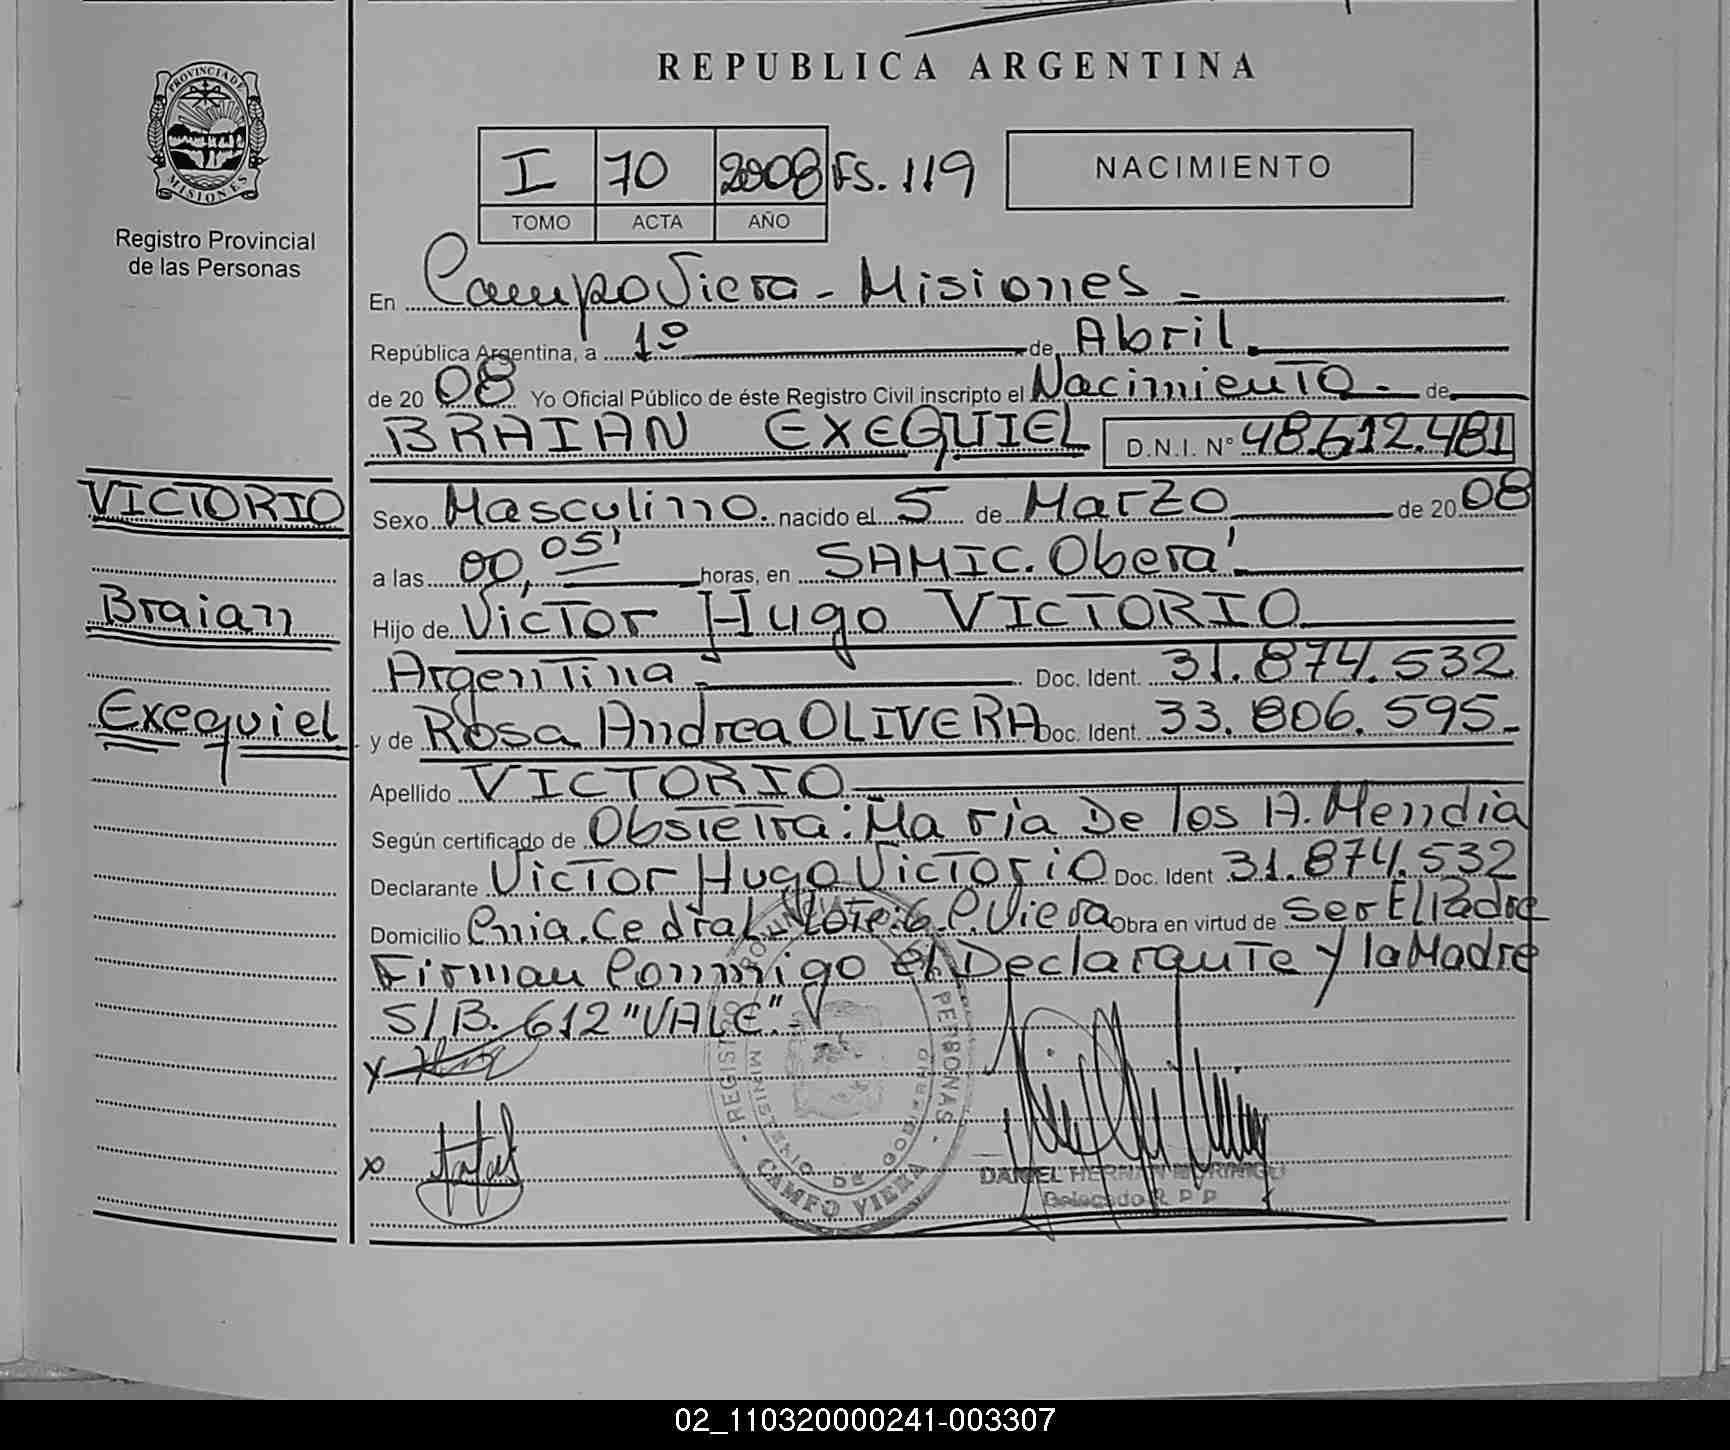 REPUBLICA ARGENTINA
PROVINCIA DE
MISIONES
Registro Provincial
de las Personas
I 70 2008 FS. 119
TOMO ACTA AÑO
NACIMIENTO
En Campo Viera - Misiones -
República Argentina, a 1º de Abril
de 2008 Yo Oficial Público de éste Registro Civil inscripto el Nacimiento - de
BRAIAN EXEQUIEL D.N.I. Nº 48.612.481
VICTORIO
Braian
Exequiel
Sexo Masculino. nacido el 5 de Marzo de 2008
a las 00,05' horas, en SAMIC. Oberá
Hijo de Victor Hugo VICTORIO
Argentina - Doc. Ident. 31.874.532
y de Rosa Andrea OLIVERA Doc. Ident. 33.806.595-
Apellido VICTORIO
Según certificado de Obstetra: Maria De los A. Mendia
Declarante Victor Hugo Victorio Doc. Ident 31.874.532
Domicilio Cnia. Cedral Lote: 6 C. Viera Obra en virtud de ser El Padre
Firman Conmigo el Declarante y la Madre
S/B. 612 "VALE"-
REGISTRO PERSONAS
MINISTERIO DE GOBIERNO
CAMPO VIERA
DANIEL
Delegado R P P
02_110320000241-003307